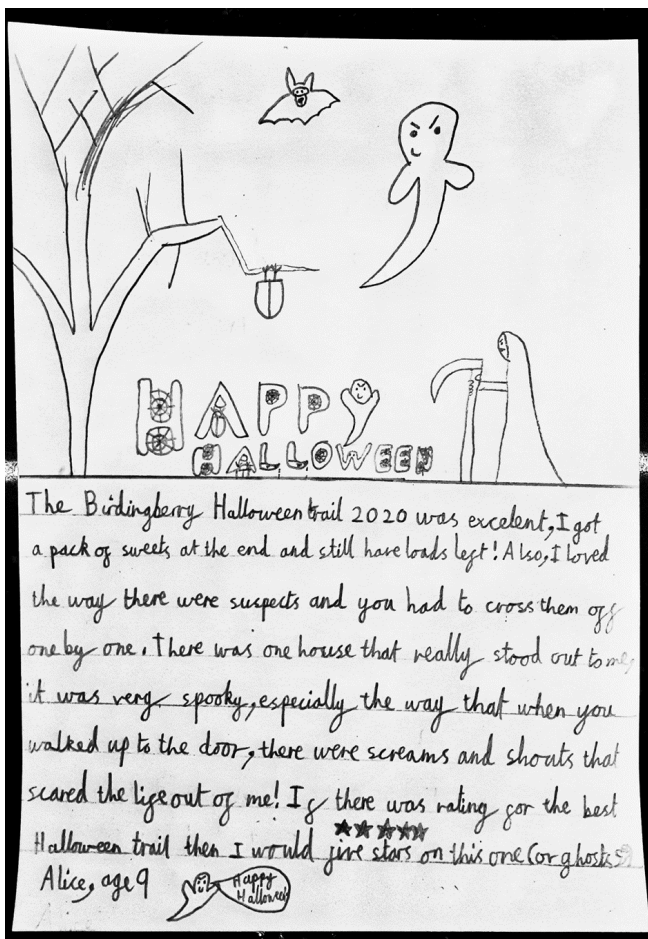 HAPPY
HALLOWEEN
The Birdingberry Halloween trail 2020 was excelent, I got
a pack of sweets at the end and still have loads left! Also, I loved
the way there were suspects and you had to cross them off
one by one. There was one house that really stood out to me,
it was very spooky, especially the way that when you
walked up to the door, there were screams and shouts that
scared the life out of me! If there was rating for the best
Halloween trail then I would five stars on this one (or ghosts
Alice, age 9
Happy
Halloween